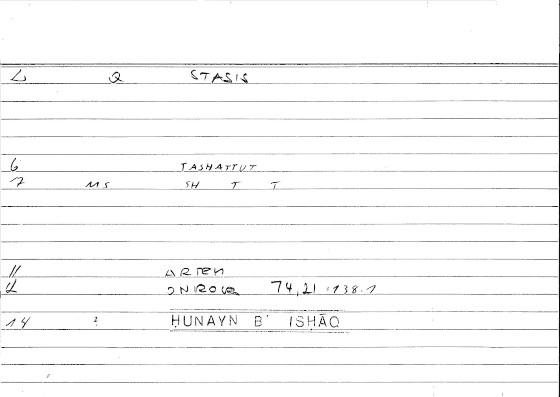 L Q STASIS
6 TASHATTUT
7 MS SH T T
11 ARTEM
12 ONIROCR 74,21 :138.1
14 ? HUNAYN B' ISHĀQ